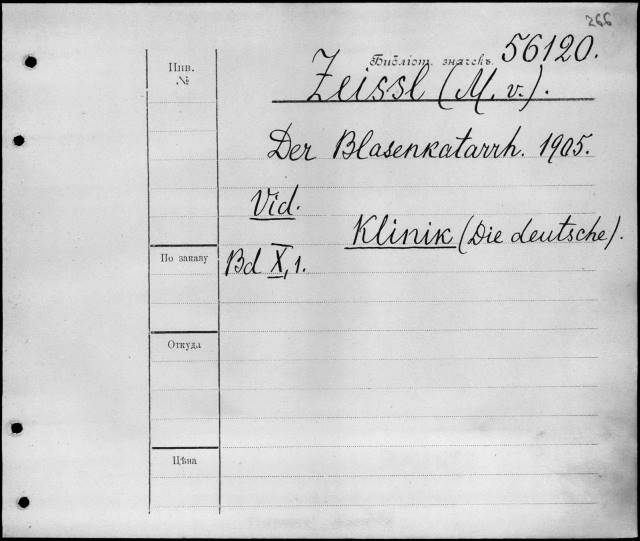 266
Инв. №
Библіот. значекъ 56120.
Zeissl (M. v.).
Der Blasenkatarrh. 1905.
Vid.
Klinik (Die deutsche).
По заказу
Bd X, 1.
Откуда
Цѣна